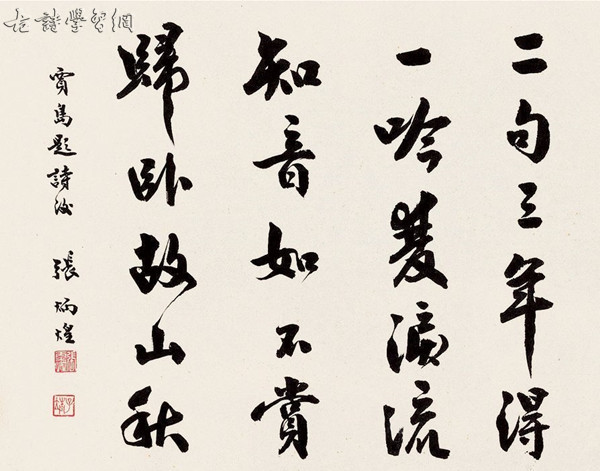 二句三年得
一吟雙淚流
知音如不賞
歸臥故山秋
賈島題詩後 張炳煌
古詩學習網